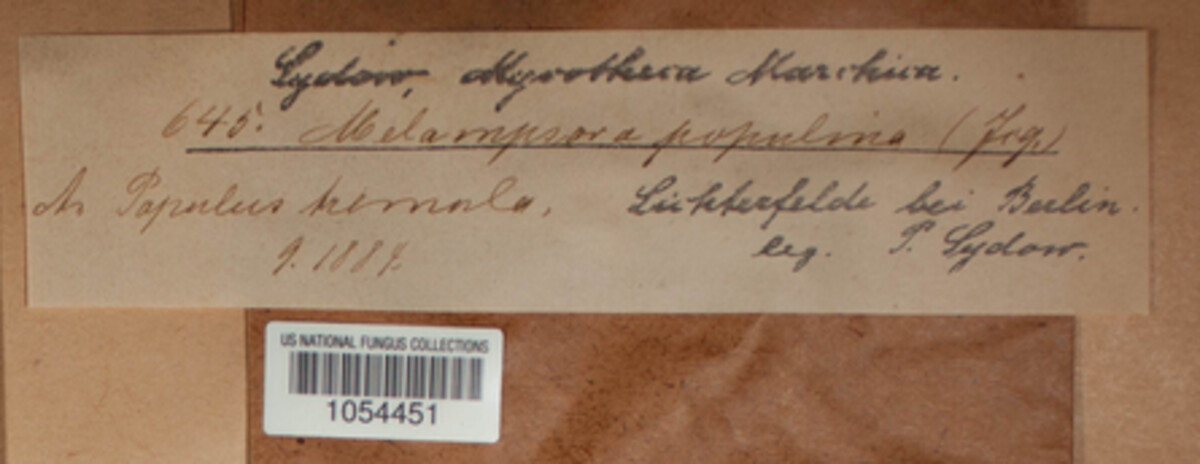 Sydow, Mycotheca Marchica.
645. Melampsora populina (Jcq.)
An Populus tremula. Lichterfelde bei Berlin.
9. 1884. leg. P. Sydow.
US NATIONAL FUNGUS COLLECTIONS
1054451